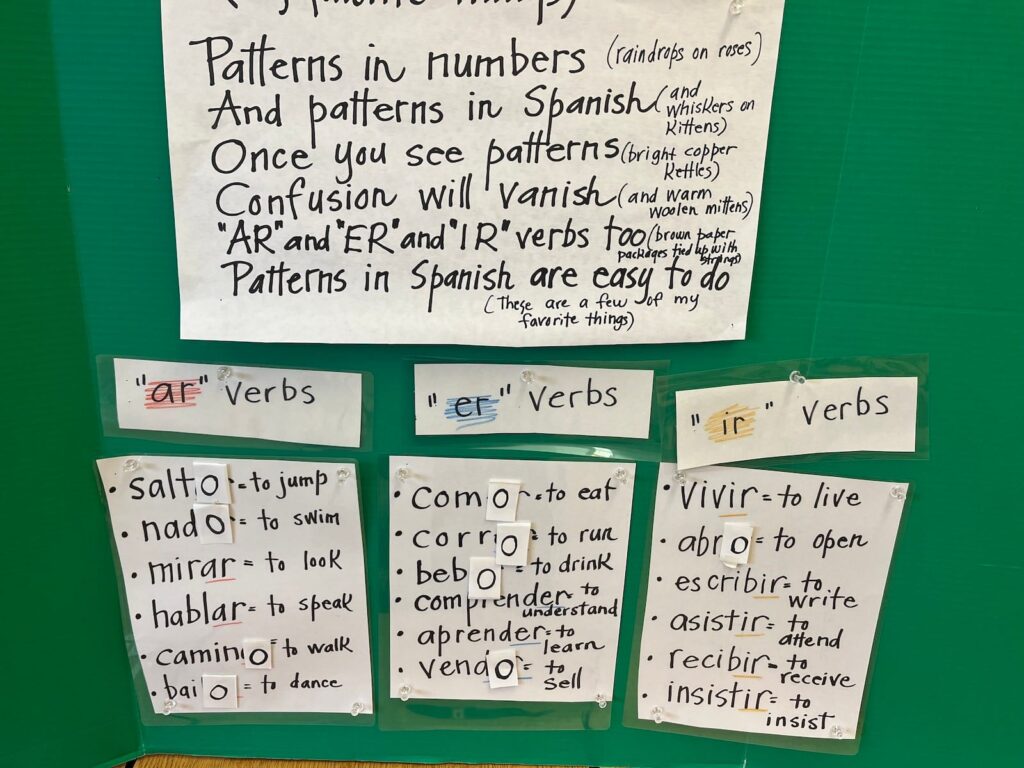 Patterns in numbers (raindrops on roses)
And patterns in Spanish (and whiskers on kittens)
Once you see patterns (bright copper kettles)
Confusion will vanish (and warm woolen mittens)
"AR" and "ER" and "IR" verbs too (brown paper packages tied up with strings)
Patterns in Spanish are easy to do
(These are a few of my
favorite things)
"ar" verbs
• salto = to jump
• nado = to swim
• mirar = to look
• hablar = to speak
• camino = to walk
• bailo = to dance
"er" verbs
• como = to eat
• corro = to run
• bebo = to drink
• comprender = to understand
• aprender = to learn
• vendo = to sell
"ir" verbs
• vivir = to live
• abro = to open
• escribir = to write
• asistir = to attend
• recibir = to receive
• insistir = to insist